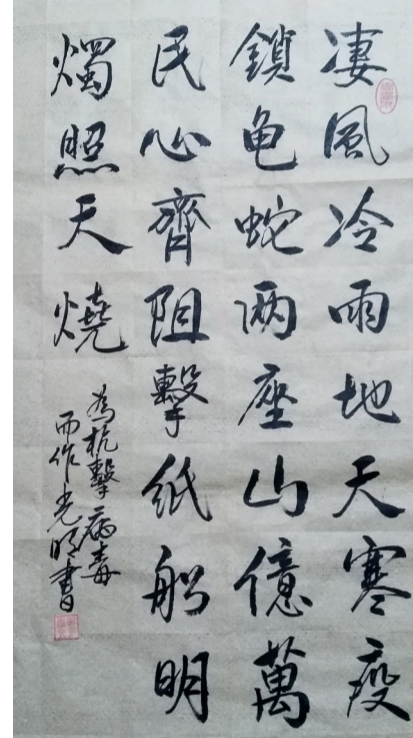 凄風冷雨地天寒疫
鎖龟蛇两座山億萬
民心齊阻擊紙船明
燭照天燒
為抗擊病毒
而作光明書